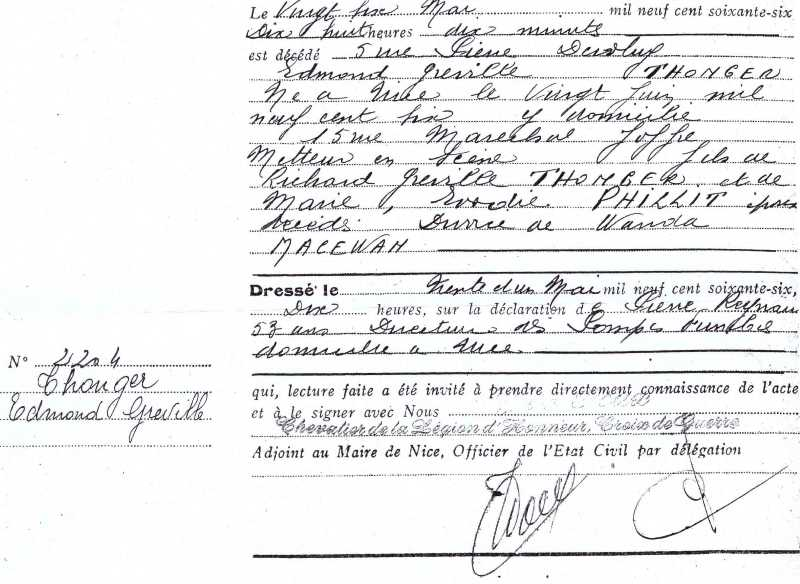 Le Vingt six Mai mil neuf cent soixante-six
Dix huit heures dix minutes
est décédé 5 rue Pierre Devoluy
Edmond Greville THONGER
Né a Nice le Vingt Juin mil
neuf cent six y domicilié
15 rue Marechal Joffre
Metteur en Scène fils de
Richard Greville THONGER et de
Marie, PHILLIT époux
décédés Divorcé de Wanda
MACEWAN
Dressé le Trente et un Mai mil neuf cent soixante-six,
Dix heures, sur la déclaration de Pierre
53 ans Directeur des Pompes Funèbres
domicilié a Nice.
N° 2204
Thonger
Edmond Greville
qui, lecture faite a été invité à prendre directement connaissance de l'acte
et à le signer avec Nous
Chevalier de la Légion d'Honneur, Croix de Guerre
Adjoint au Maire de Nice, Officier de l'Etat Civil par délégation